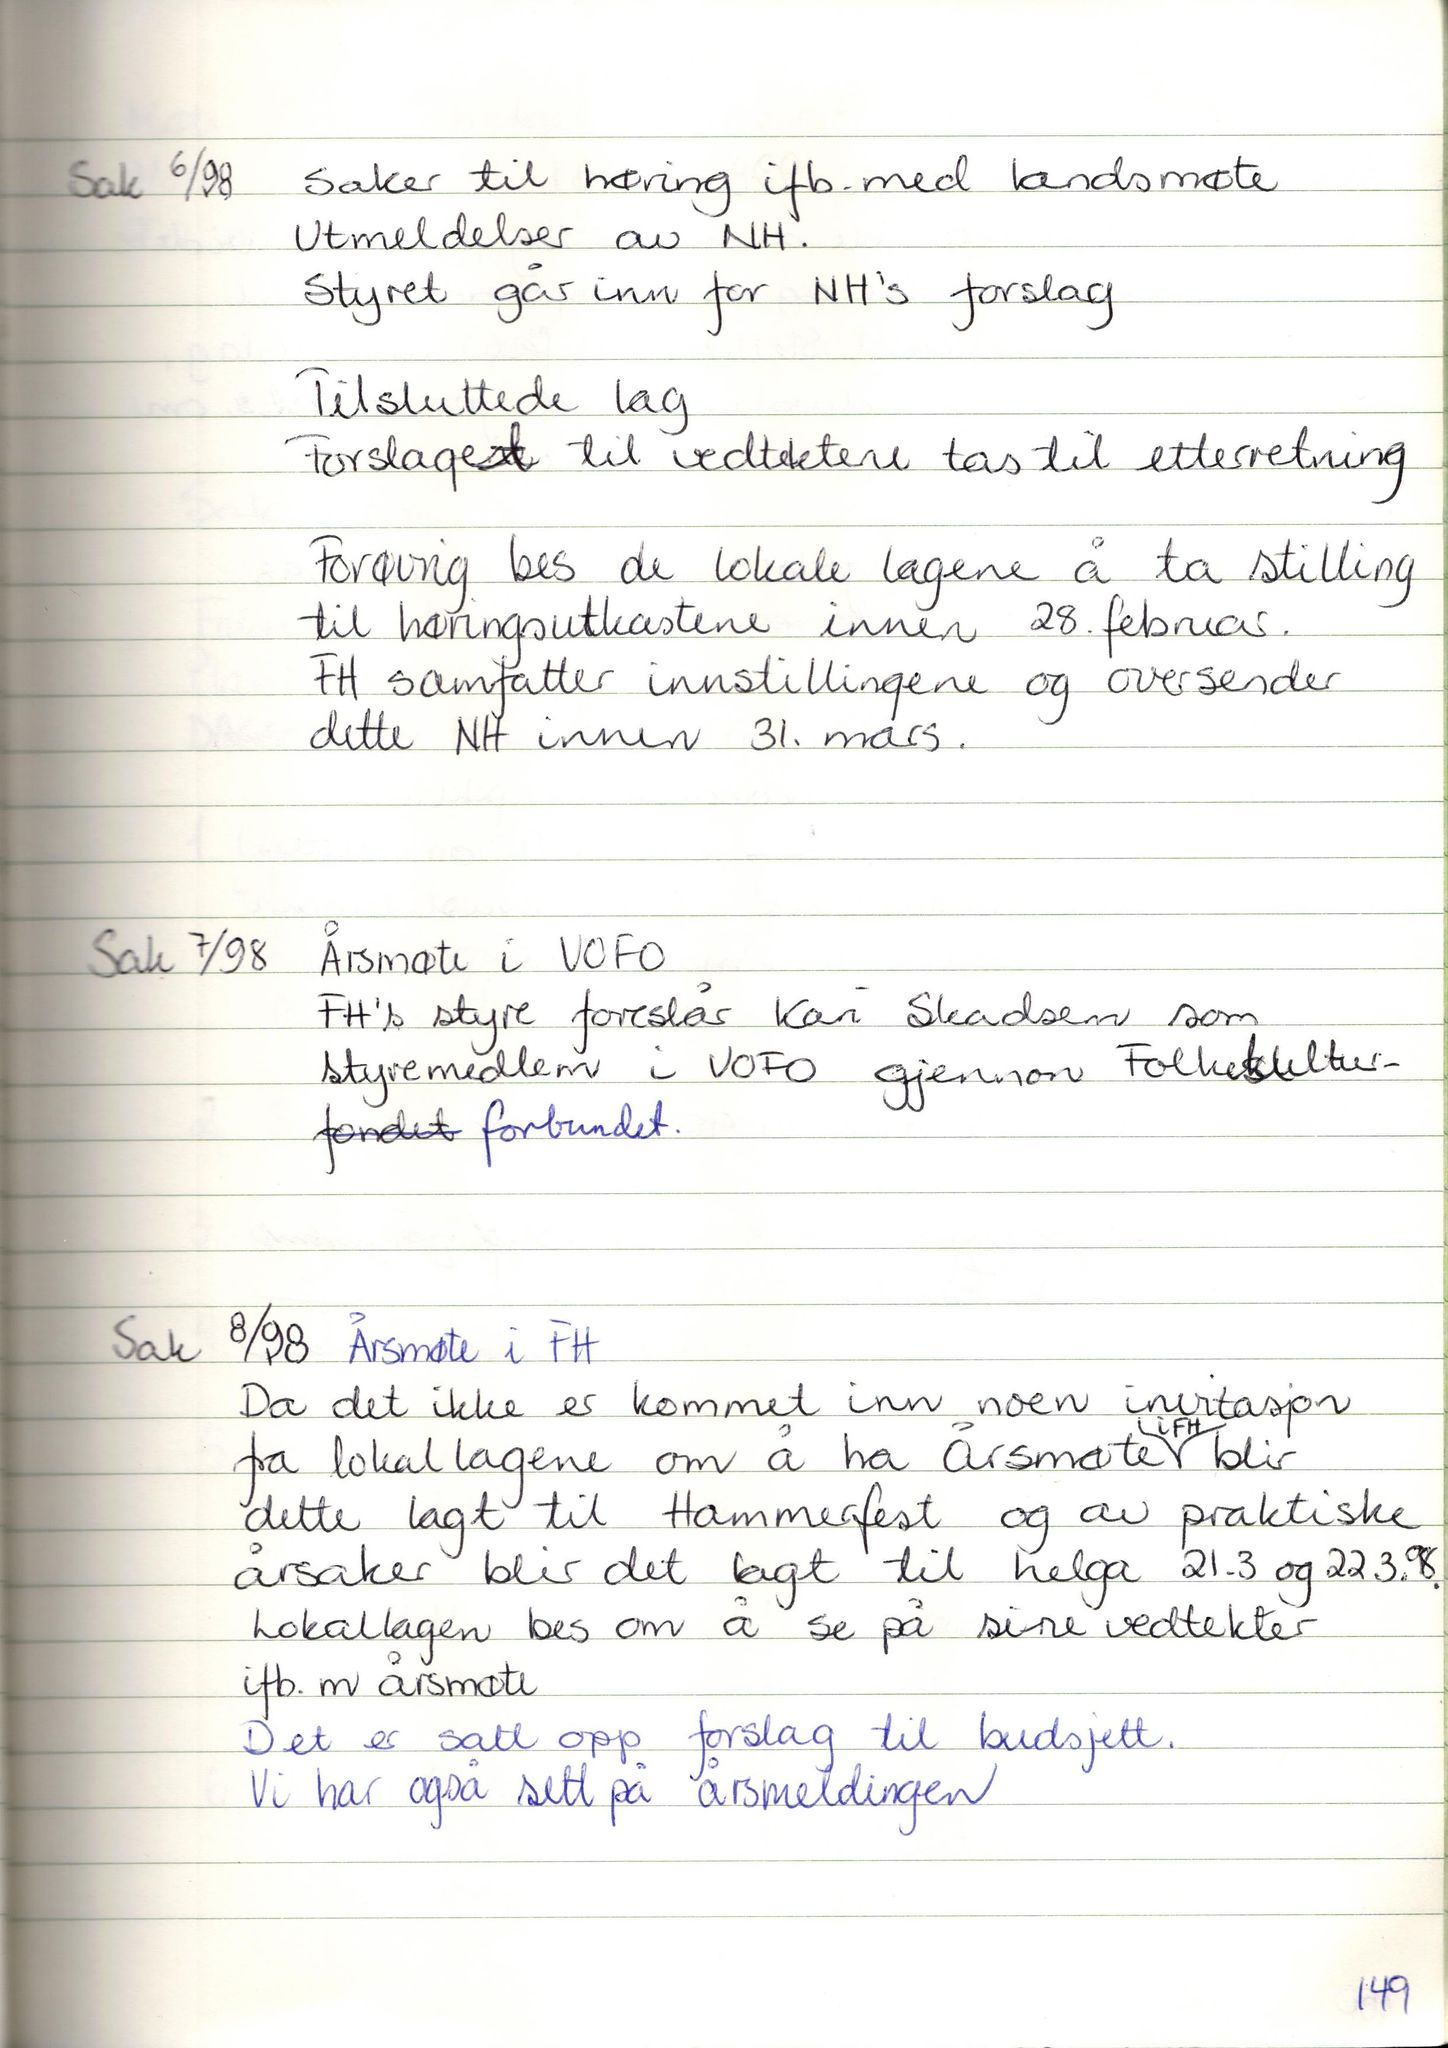 Sak 6/98 Saker til høring ifb. med landsmøte
Utmeldelser av NH.
Styret går inn for NH's forslag
Tilsluttede lag
Forslaget til vedtektene tas til etterretning
Forøvrig bes de lokale lagene å ta stilling
til høringsutkastene innen 28. februar.
FH samfatter innstillingene og oversender
dette NH innen 31. mars.
Sak 7/98 Årsmøte i VOFO
FH's styre foreslår Kari Skadsem som
styremedlem i VOFO gjennom Folkekultur-
fondet forbundet.
Sak 8/98 Årsmøte i FH
Da det ikke er kommet inn noen invitasjon
fra lokallagene om å ha Årsmøte i FH blir
dette lagt til Hammerfest og av praktiske
årsaker blir det lagt til helga 21.3 og 22.3.98.
Lokallagen bes om å se på sine vedtekter
ifb. m årsmøte
Det er satt opp forslag til budsjett.
Vi har også sett på årsmeldingen
149